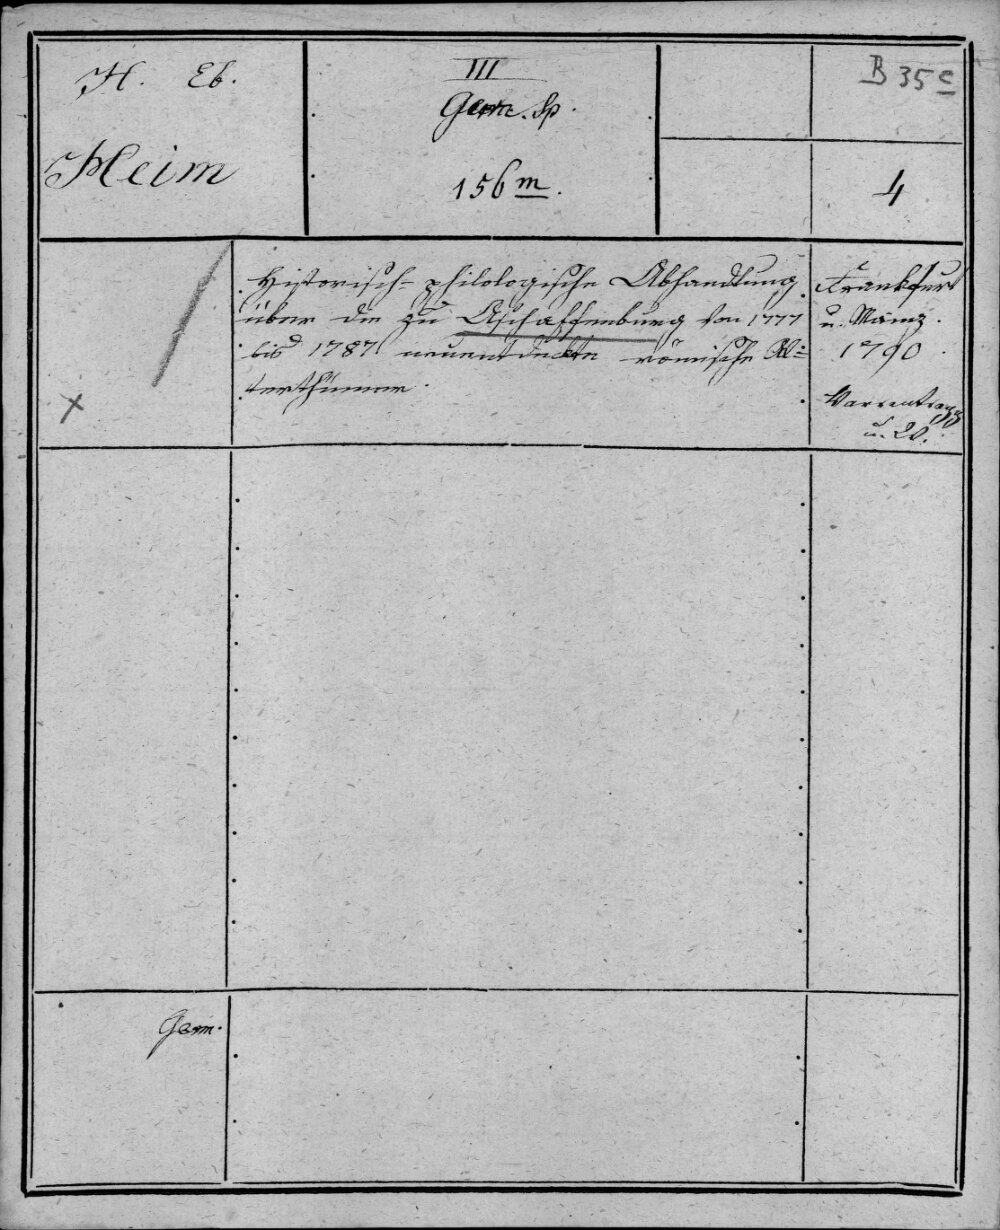 H. Eb.
Heim
III
Germ. Sp.
156 m.
B 35 c
4
Historisch-philologische Abhandlung
über die zu Aschaffenburg von 1777
bis 1787 neuentdeckte römische Al-
terthümer.
Frankfurt
u. Mainz.
1790
Varrentrapp
u. W.
x
Germ.